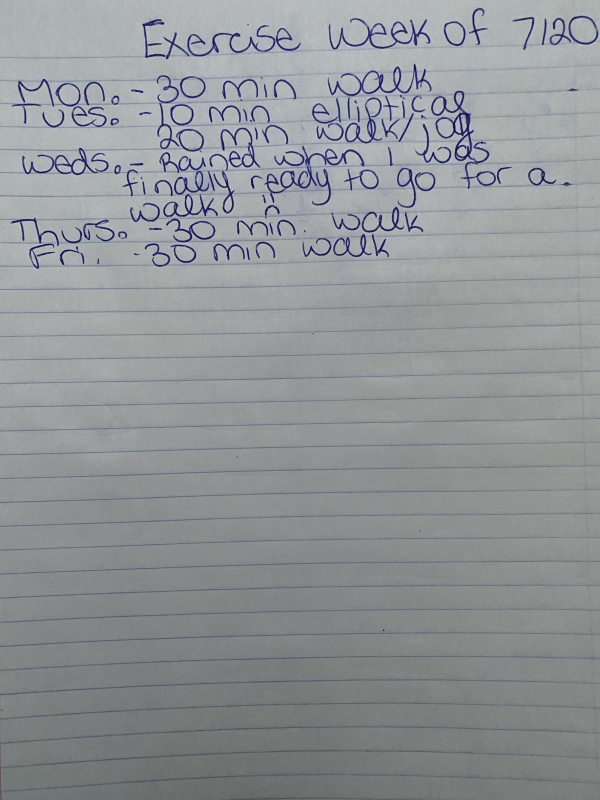 Exercise Week of 7/20
Mon. - 30 min walk
Tues. - 10 min elliptical
20 min walk/jog
Weds. - Rained when I was
finally ready to go for a.
walk :(
Thurs. - 30 min. walk
Fri. - 30 min walk